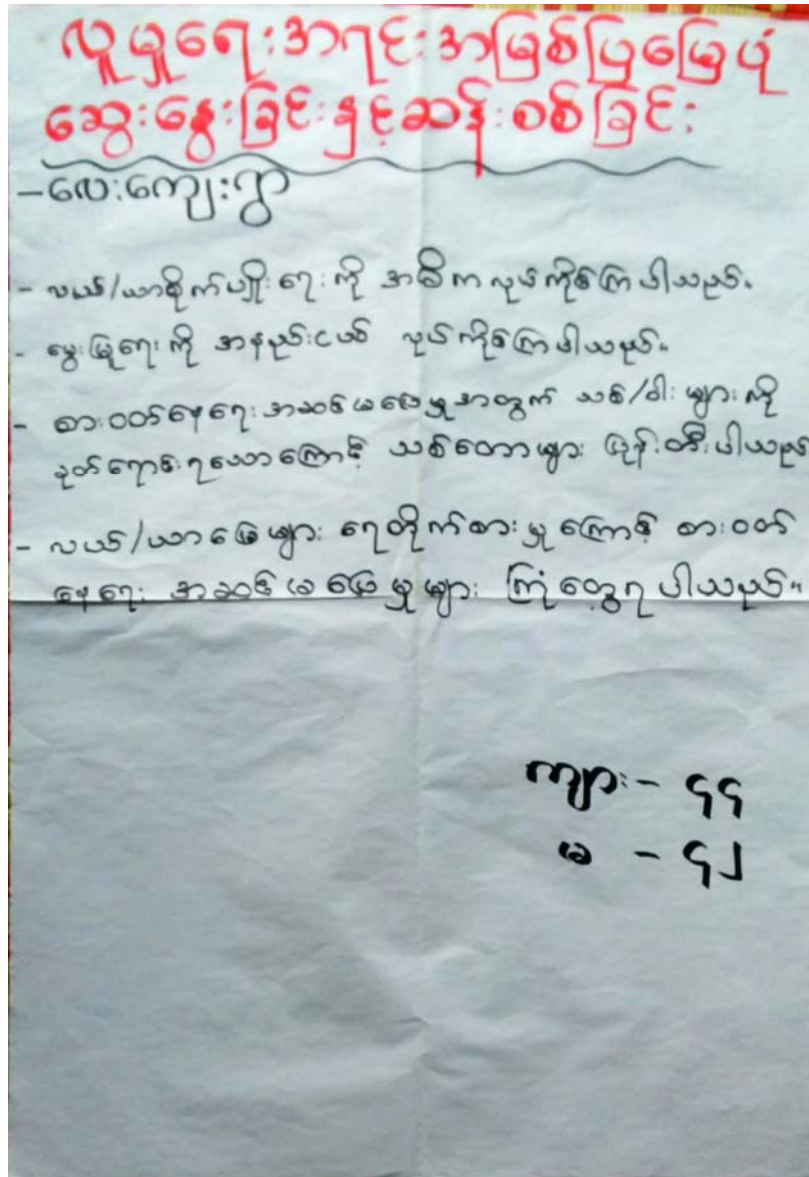 လူမှုရေးအရင်းအမြစ်ပြမြေပုံ
ဆွေးနွေးခြင်းနှင့်ဆန်းစစ်ခြင်း
- လေးကျေးရွာ
- လယ်/ယာစိုက်ပျိုးရေးကို အဓိကလုပ်ကိုင်ကြပါသည်။
- မွေးမြူရေးကို အနည်းငယ် လုပ်ကိုင်ကြပါသည်။
- စားဝတ်နေရေးအဆင်မပြေမှုအတွက် သစ်/ဝါးများကို
ခုတ်ရောင်းရသောကြောင့် သစ်တောများ ပြုန်းတီးပါသည်
- လယ်/ယာမြေများ ရေတိုက်စားမှုကြောင့် စားဝတ်
နေရေး အဆင်မပြေမှုများ ကြုံတွေ့ရပါသည်။
ကျား - ၄၄
မ - ၄၂